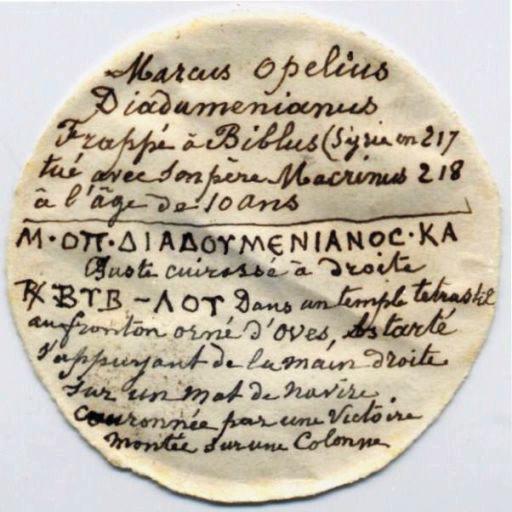 Marcus Opelius
Diadumenianus
Frappé à Biblus (Syrie en 217
tué avec son père Macrinus 218
à l'âge de 10 ans
Μ·ΟΠ·ΔΙΑΔΟΥΜΕΝΙΑΝΟC·ΚΑ
Buste cuirassé à droite
R/ ΒΥΒ – ΛΟΥ Dans un temple tetrastil
au fronton orné d'oves, Astarté
s'appuyant de la main droite
sur un mat de navire
couronnée par une Victoire
montée sur une Colonne